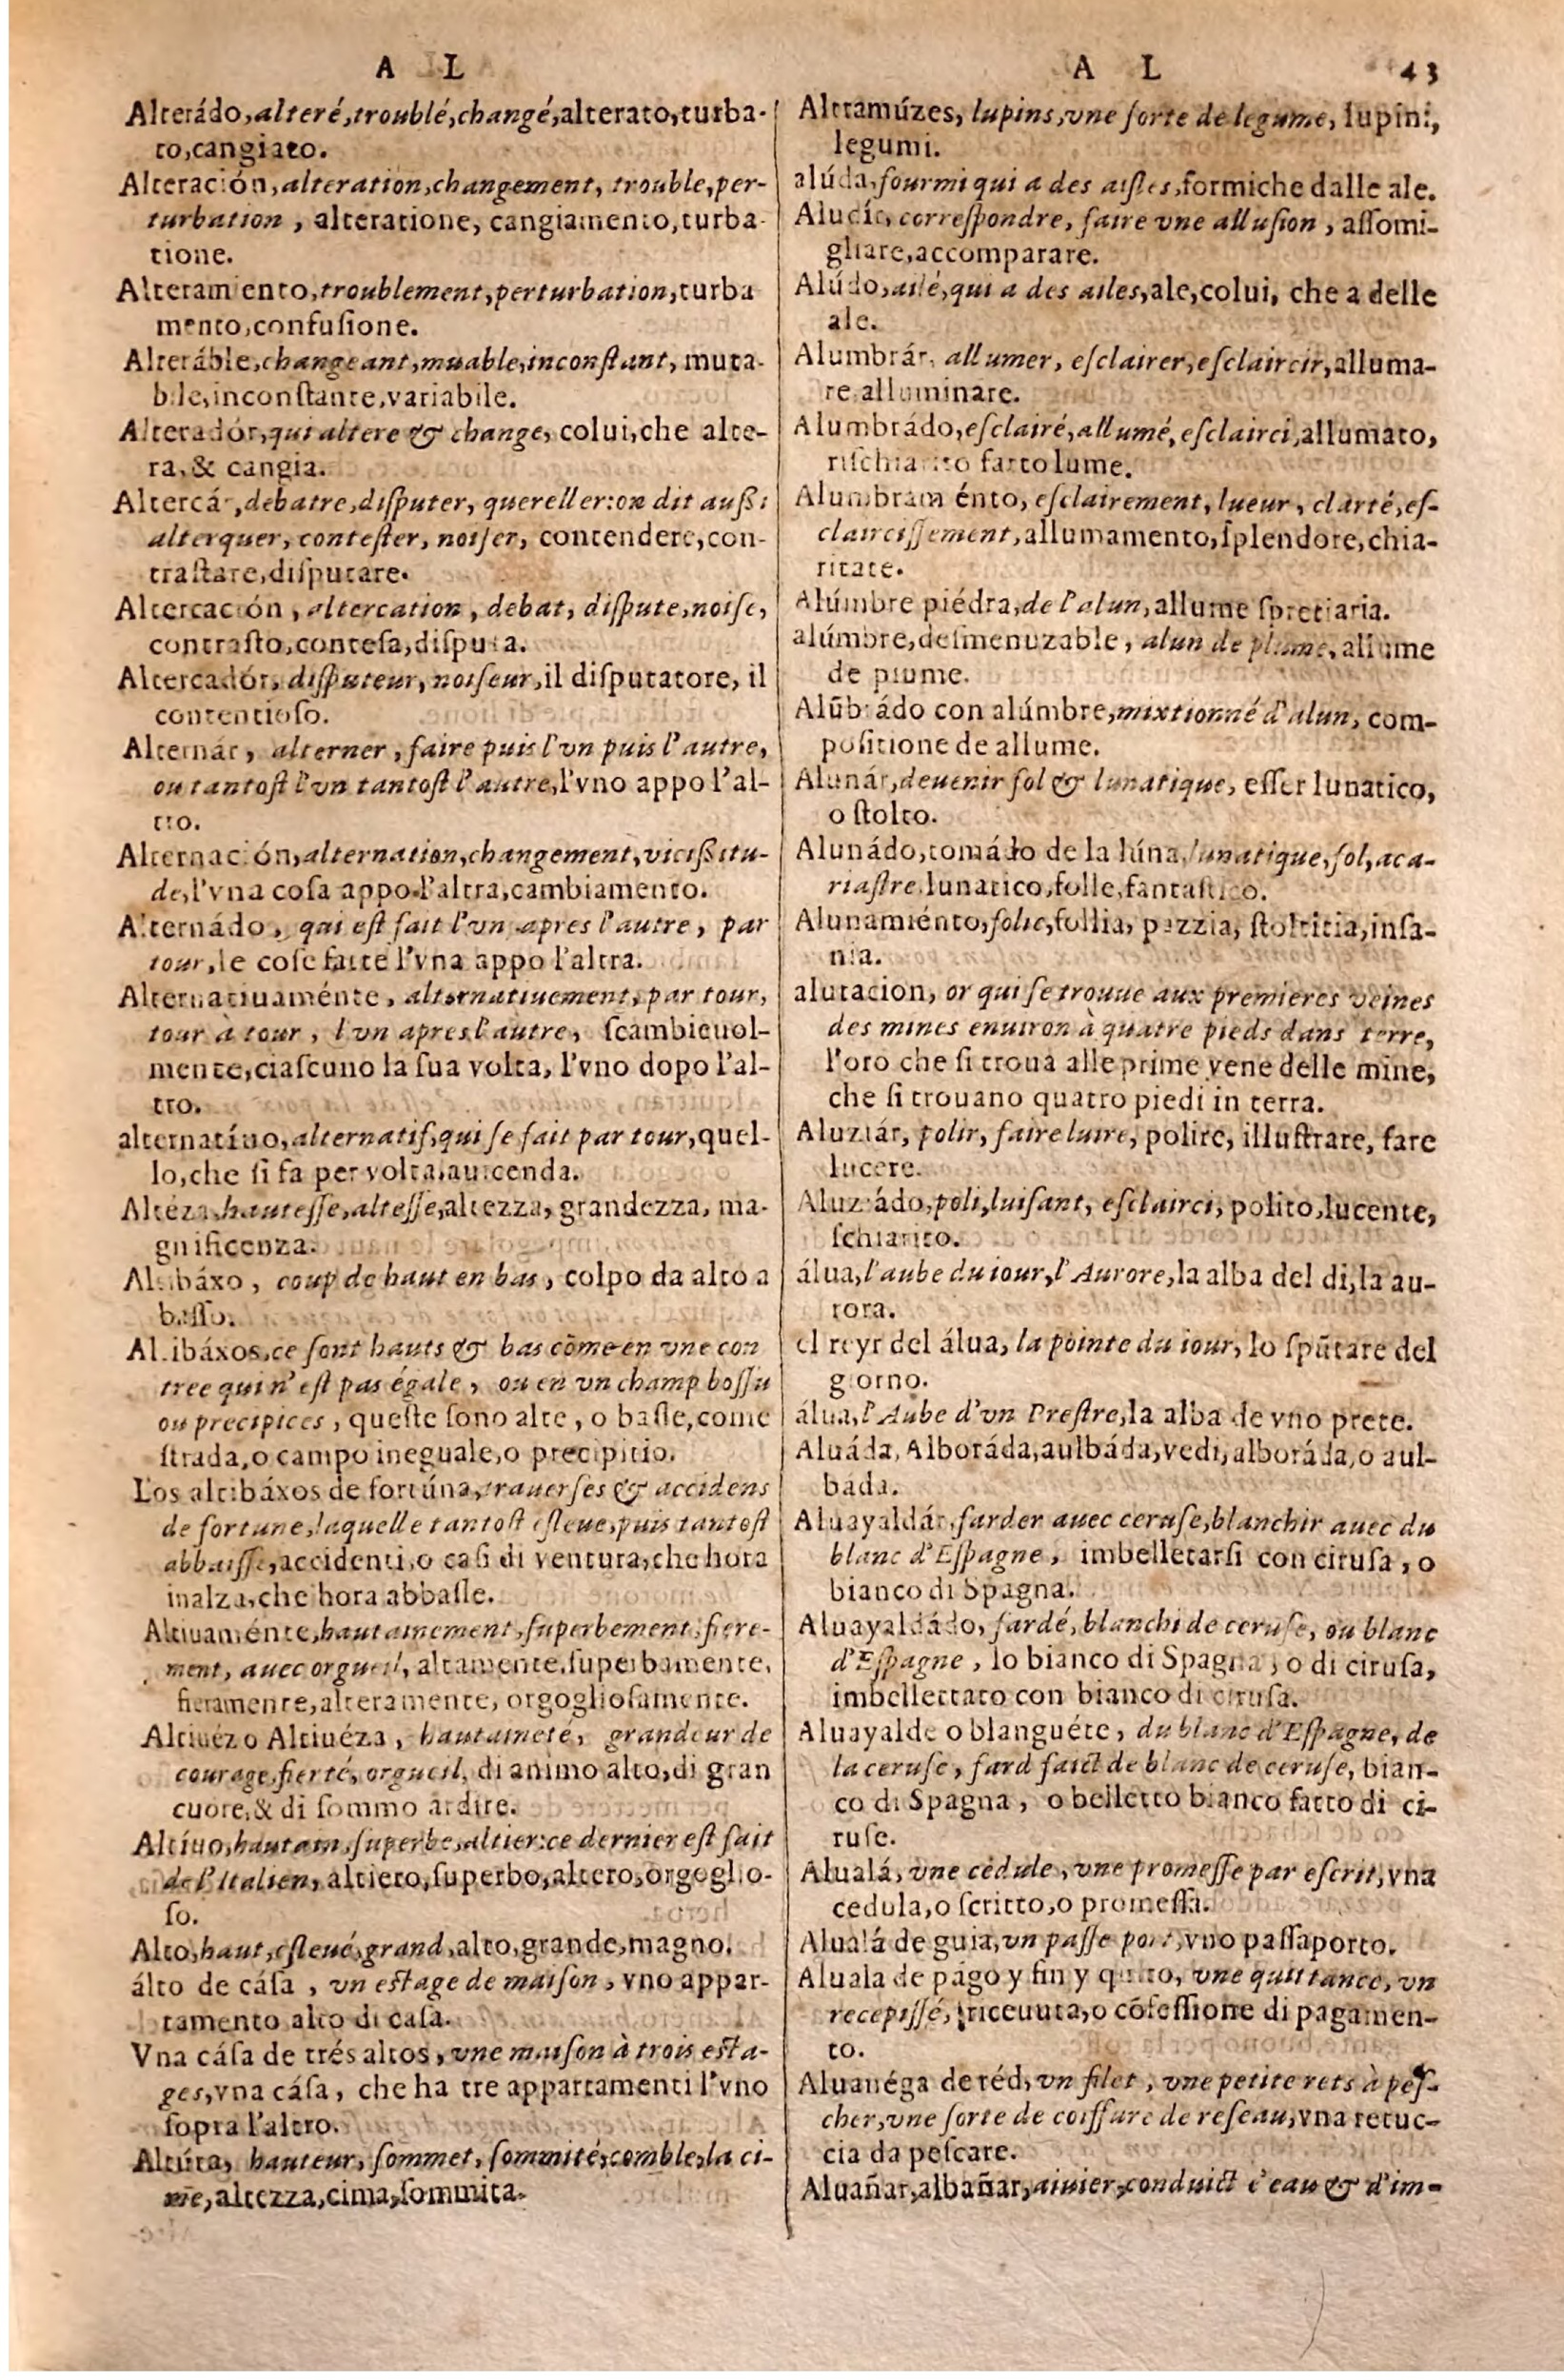 A L
Alterádo, alteré, troublé, changé, alterato, turba-
to, cangiato.
Alteración, alteration, changement, trouble, per-
turbation, alteratione, cangiamento, turba
tione.
Alteramiento, troublement, perturbation, turba
mento, confuſione.
Alteráble, changeant, muable, inconſtant, muta-
bile, inconſtante, variabile.
Alteradór, qui altere & change, colui, che alte-
ra, & cangia.
Altercár, debatre, diſputer, quereller: on dit außi
alterquer, conteſter, noiſer, contendere, con-
traſtare, diſputare.
Altercación, altercation, debat, diſpute, noiſe,
contraſto, conteſa, diſputa.
Altercadór, diſputeur, noiſeur, il diſputatore, il
contentioſo.
Alternár, alterner, faire puis l'vn puis l'autre,
ou tantoſt l'vn tantoſt l'autre, l'vno appo l'al-
tro.
Alternación, alternation, changement, vicißitu-
de, l'vna coſa appo l'altra, cambiamento.
Alternádo, qui eſt fait l'vn apres l'autre, par
tour, le coſe fatte l'vna appo l'altra.
Alternatiuaménte, alternatiuement, par tour,
tour à tour, l'vn apres l'autre, ſcambieuol-
mente, ciaſcuno la ſua volta, l'vno dopo l'al-
tro.
alternatíuo, alternatif, qui ſe fait par tour, quel-
lo, che ſi fa per volta, auicenda.
Altéza, hauteſſe, alteſſe, altezza, grandezza, ma-
gnificenza.
Altibáxo, coup de haut en bas, colpo da alto a
baſſo.
Altibáxos, ce ſont hauts & bas cōme en vne con
tree qui n'eſt pas égale, ou en vn champ boſſu
ou precipices, queſte ſono alte, o baſſe, come
ſtrada, o campo ineguale, o precipitio.
Los altibáxos de fortúna, trauerſes & accidens
de fortune, laquelle tantoſt eſleue, puis tantoſt
abbaiſſe, accidenti, o caſi di ventura, che hora
inalza, che hora abbaſſe.
Altiuaménte, hautainement, ſuperbement, fiere-
ment, auec orgueil, altamente, ſuperbamente,
fieramente, alteramente, orgoglioſamente.
Altiuéz o Altiuéza, hautaineté, grandeur de
courage, fierté, orgueil, di animo alto, di gran
cuore, & di ſommo ardire.
Altíuo, hautain, ſuperbe, altier: ce dernier eſt fait
de l'Italien, altiero, ſuperbo, altero, orgoglio-
ſo.
Alto, haut, eſleué, grand, alto, grande, magno.
álto de cáſa, vn eſtage de maiſon, vno appar-
tamento alto di caſa.
Vna cáſa de trés altos, vne maiſon à trois eſta-
ges, vna cáſa, che ha tre appartamenti l'vno
ſopra l'altro.
Altúra, hauteur, ſommet, ſommité, comble, la ci-
me, altezza, cima, ſommita.
A L 43
Altramúzes, lupins, vne ſorte de legume, lupini,
legumi.
alúda, fourmi qui a des aiſles, formiche dalle ale.
Aludír, correſpondre, faire vne alluſion, aſſomi-
gliare, accomparare.
Alúdo, ailé, qui a des ailes, ale, colui, che a delle
ale.
Alumbrár, allumer, eſclairer, eſclaircir, alluma-
re, alluminare.
Alumbrádo, eſclairé, allumé, eſclairci, allumato,
riſchiarito fatto lume.
Alumbramiénto, eſclairement, lueur, clarté, eſ-
clairciſſement, allumamento, ſplendore, chia-
ritate.
Alúmbre piédra, de l'alun, allume ſpretiaria.
alúmbre, deſmenuzable, alun de plume, allume
de piume.
Alūbrádo con alúmbre, mixtionné d'alun, com-
poſitione de allume.
Alunár, deuenir fol & lunatique, eſſer lunatico,
o ſtolto.
Alunádo, tomádo de la lúna, lunatique, fol, aca-
riaſtre, lunatico, folle, fantaſtico.
Alunamiénto, folie, follia, pazzia, ſtoltitia, inſa-
nia.
alutacion, or qui ſe trouue aux premieres veines
des mines enuiron à quatre pieds dans terre,
l'oro che ſi troua alle prime vene delle mine,
che ſi trouano quatro piedi in terra.
Aluziár, polir, faire luire, polire, illuſtrare, fare
lucere.
Aluziádo, poli, luiſant, eſclairci, polito, lucente,
ſchiarito.
álua, l'aube du iour, l'Aurore, la alba del di, la au-
rora.
el reyr del álua, la pointe du iour, lo ſpūtare del
giorno.
álua, l'Aube d'vn Preſtre, la alba de vno prete.
Aluáda, Alboráda, aulbáda, vedi, alboráda, o aul-
bada.
Aluayaldár, farder auec ceruſe, blanchir auec du
blanc d'Eſpagne, imbelletarſi con ciruſa, o
bianco di Spagna.
Aluayaldádo, fardé, blanchi de ceruſe, ou blanc
d'Eſpagne, lo bianco di Spagna, o di ciruſa,
imbellettato con bianco di ciruſa.
Aluayalde o blanguéte, du blanc d'Eſpagne, de
la ceruſe, fard faict de blanc de ceruſe, bian-
co di Spagna, o belletto bianco fatto di ci-
ruſe.
Alualá, vne cedule, vne promeſſe par eſcrit, vna
cedula, o ſcritto, o promeſſa.
Alualá de guia, vn paſſe port, vno paſſaporto.
Aluala de págo y fin y quito, vne quittance, vn
recepiſſé, riceuuta, o cōfeſſione di pagamen-
to.
Aluanéga de réd, vn filet, vne petite rets à peſ-
cher, vne ſorte de coiffure de reſeau, vna retuc-
cia da peſcare.
Aluañar, albañar, aiuier, conduict d'eau & d'im-